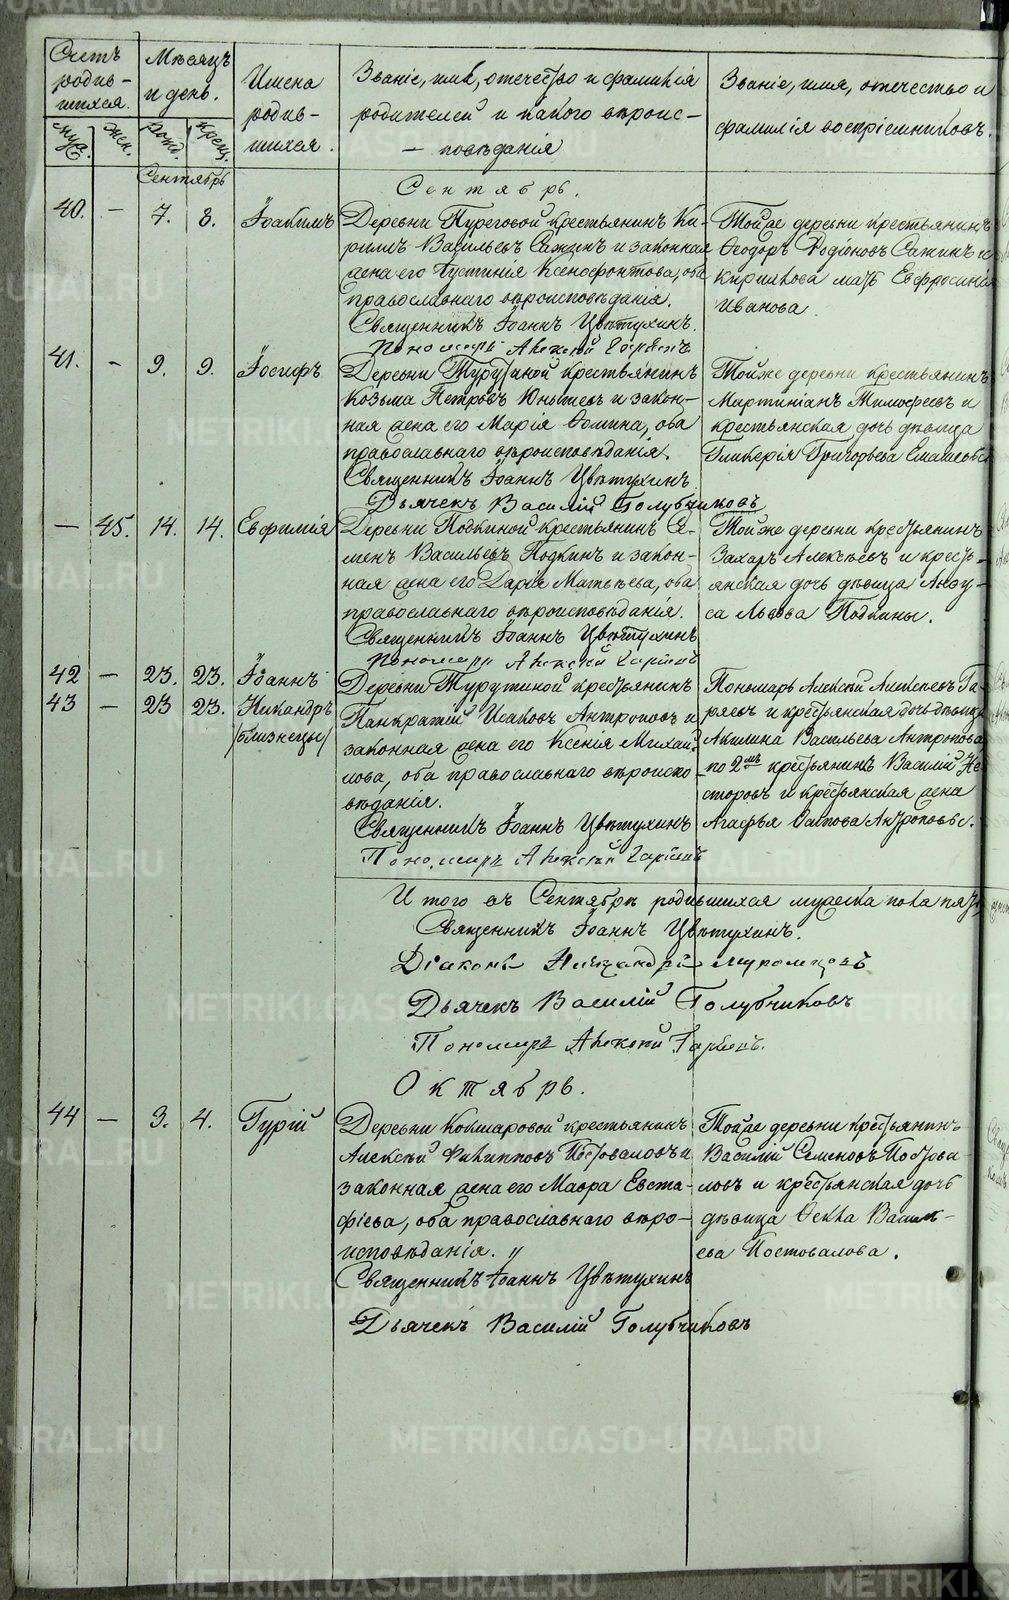 Счетъ родив- шихся.
Мѣсяцъ и день.
муж.
жен.
рожд.
крещ.
Имена родив- шихся.
Званіе, имя, отечество и фамилія
родителей и какого вѣроис-
- повѣданія
Званіе, имя, отечество и
фамилія воспріемниковъ.
Сентябрь
Сентябрь.
40. - 7. 8. Іоакимъ
Деревни крестьянинъ Ки-
рилъ Васильевъ Сажинъ и законная
жена его Іустинія Ксенофонтова, оба
православнаго вѣроисповѣданія.
Священникъ Іоаннъ Цвѣтухинъ.
Пономарь Алексѣй Гаряевъ
Тойже деревни крестьянинъ
Ѳеодоръ Родіоновъ Сажинъ и
Кирилова мать Евфросинія
Иванова
41. - 9. 9. Іосифъ
Деревни Турутиной крестьянинъ
Козьма Петровъ и закон-
ная жена его Марія Ѳомина, оба
православнаго вѣроисповѣданія.
Священникъ Іоаннъ Цвѣтухинъ
Дьячекъ Василій Голубчиковъ
Тойже деревни крестьянинъ
Мартиніанъ Тимофеевъ и
крестьянская дочь дѣвица
Гликерія Григорьева
- 45. 14. 14. Евфимія
Деревни Подкиной крестьянинъ Се-
менъ Васильевъ Подкинъ и закон-
ная жена его Дарія Матвѣева, оба
православнаго вѣроисповѣданія.
Священникъ Іоаннъ Цвѣтухинъ
Пономарь Алексѣй Гаряевъ
Тойже деревни крестьянинъ
Захаръ Алексѣевъ и кресть-
янская дочь дѣвица Анфу-
са Львова Подкины.
42 - 23. 23. Іоаннъ
43 - 23 23. Никандръ
/близнецы/
Деревни Турутиной крестьянинъ
Панкратій Исаковъ Антроповъ и
законная жена его Ксенія Михай-
лова, оба православнаго вѣроиспо-
вѣданія.
Священникъ Іоаннъ Цвѣтухинъ
Пономарь Алексѣй Гаряевъ
Пономарь Алексѣй Алексѣевъ Га-
ряевъ и крестьянская дочь дѣвица
Акилина Васильева Антропова
по 2мъ крестьянинъ Василій Не-
сторовъ и крестьянская жена
Агафья Антроповы.
Итого въ Сентябрѣ родившихся мужеска пола пять,
Священникъ Іоаннъ Цвѣтухинъ.
Діаконъ Муромцовъ
Дьячекъ Василій Голубчиковъ
Пономарь Алексѣй Гаряевъ.
Октябрь.
44 - 3. 4. Гурій
Деревни Кокшаровой крестьянинъ
Алексѣй Филипповъ Постоваловъ и
законная жена его Мавра Евста-
фіева, оба православнаго вѣро-
исповѣданія.
Священникъ Іоаннъ Цвѣтухинъ
Дьячекъ Василій Голубчиковъ
Тойже деревни крестьянинъ
Василій Семеновъ Постова-
ловъ и крестьянская дочь
дѣвица Ѳекла Василь-
ева Постовалова.
METRIKI.GASO-URAL.RU